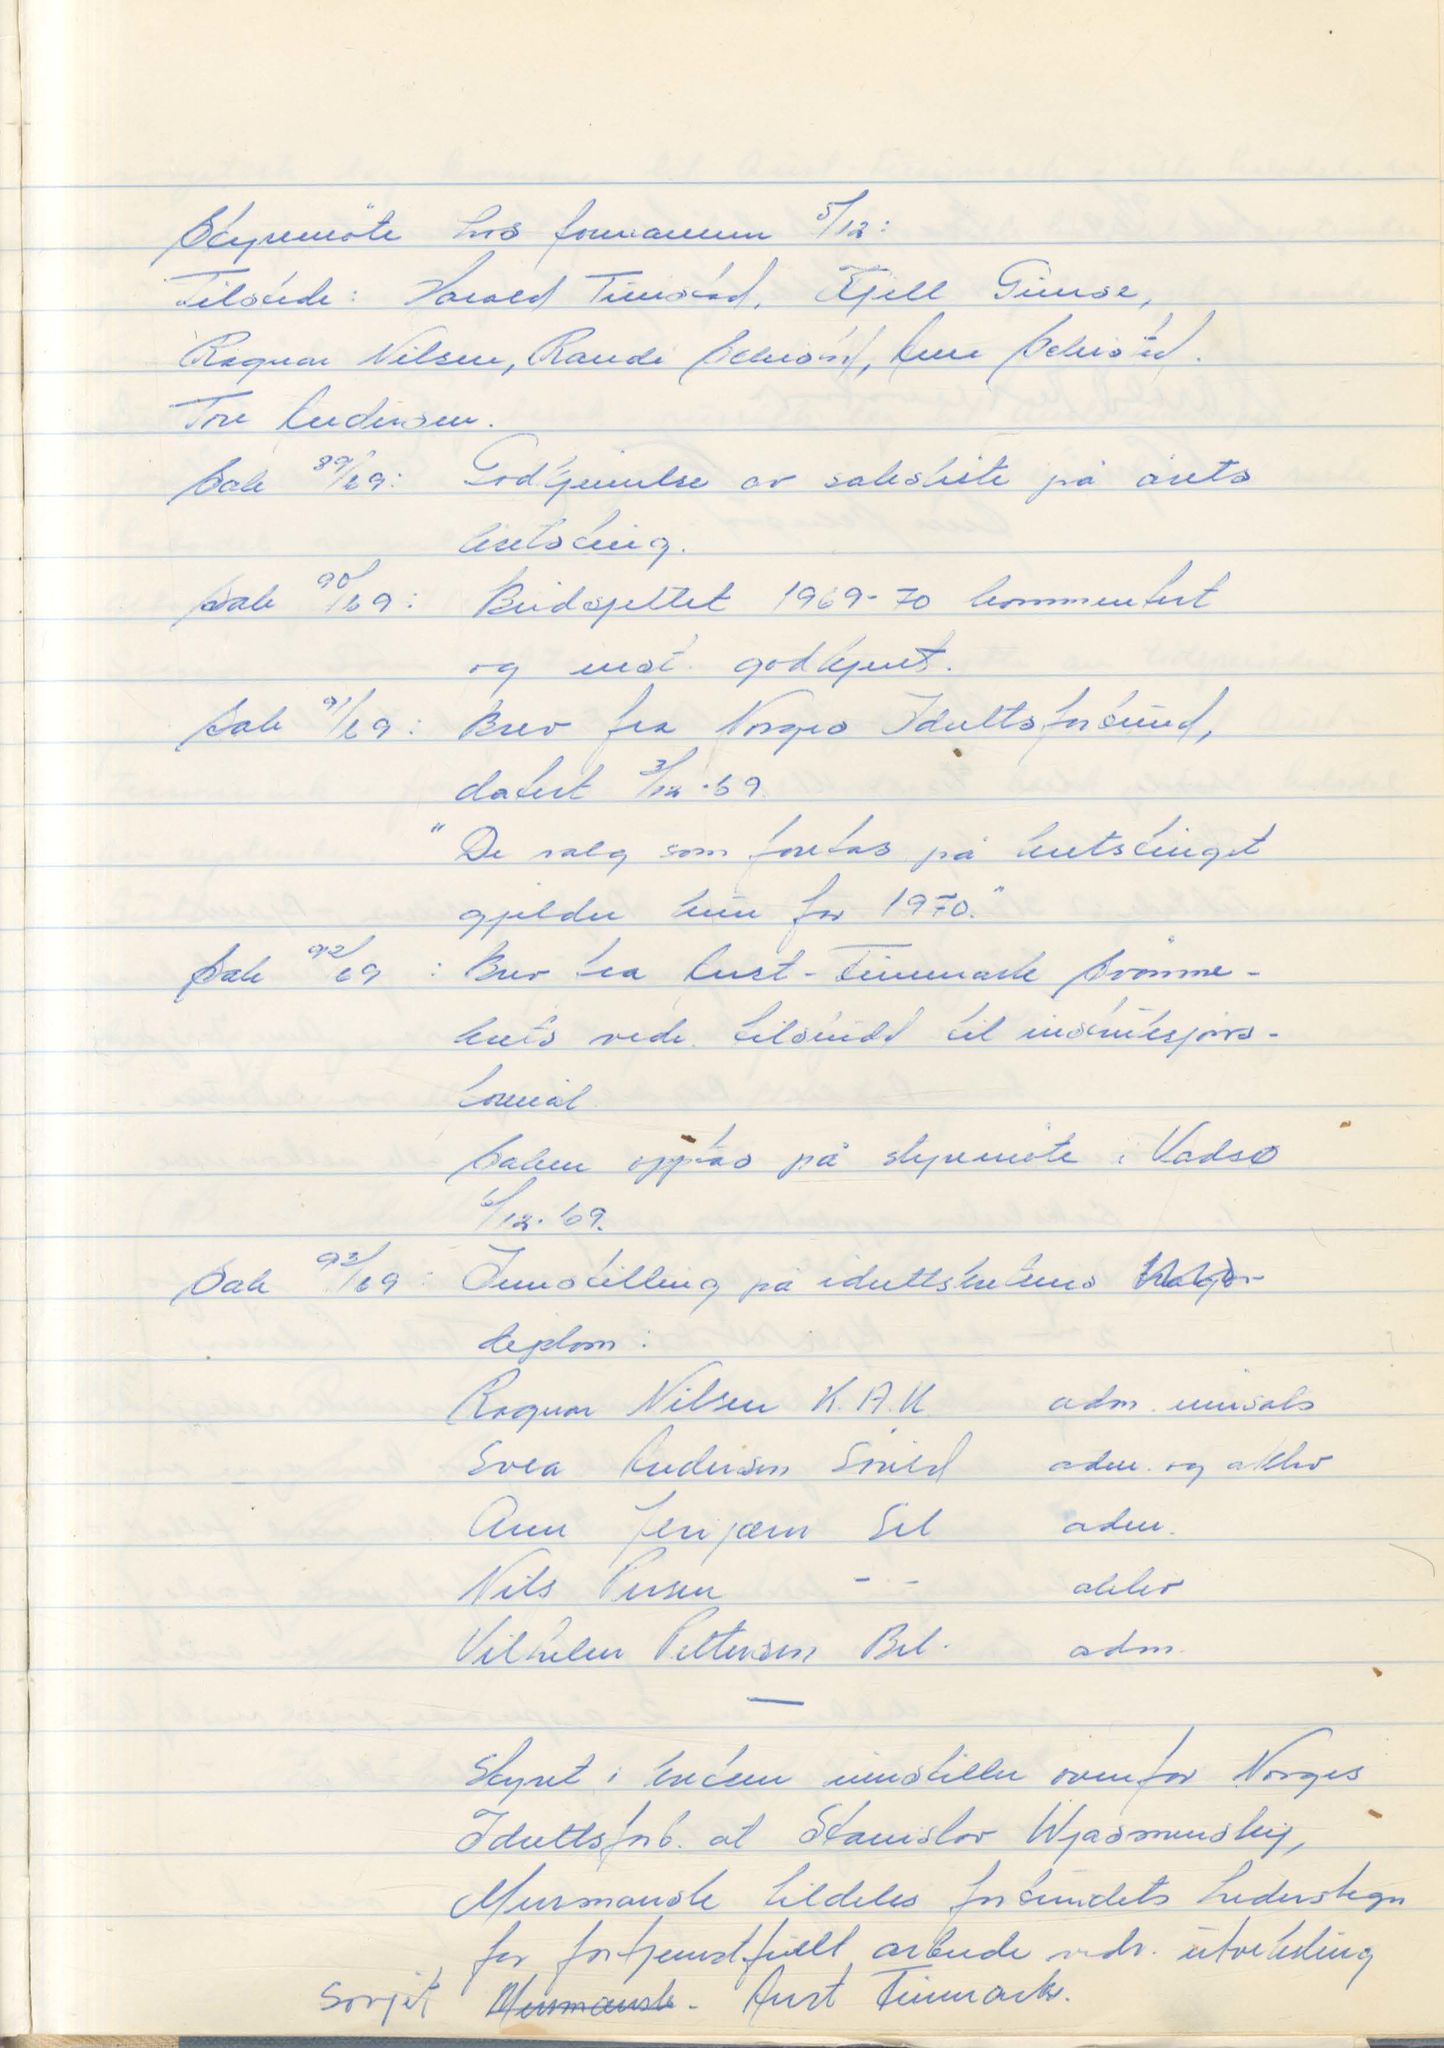 Styremöte hos formannen 5/12:
Tilstede: Harald Timstad, Kjell Gimse,
Ragnar Nilsen, Randi, Arne
Tore Andersen.
Sak 89/69: Godkjennelse av saksliste på årets
kretsting.
Sak 90/69: Budsjettet 1969-70 kommentert
og enst. godkjent.
Sak 91/69: Brev fra Norges Idrettsforbund,
datert 3/12-69.
"De valg som foretas på kretstinget
gjelder kun for 1970."
Sak 92/69: Brev fra Aust-Finnmark Svömme-
krets vedr. tilskudd til instruksjons-
formål
Saken opptas på styremöte i Vadsö
6/12-69.
Sak 93/69: Innstilling på idrettskretsens
diplom:
Ragnar Nilsen K.A.K adm.
Svea Andersen adm. og aktiv
Ann Sil adm.
Nils Persen - - aktiv
Vilhelm Pettersen Bil. adm.
—
Styret i kretsen innstiller ovenfor Norges
Idrettsforb. at Stanislav Wjasmenskij,
Murmansk tildeles forbundets hederstegn
for fortjenstfullt arbeide vedr. utveksling
Sovjet Murmansk - Aust Finnmark.